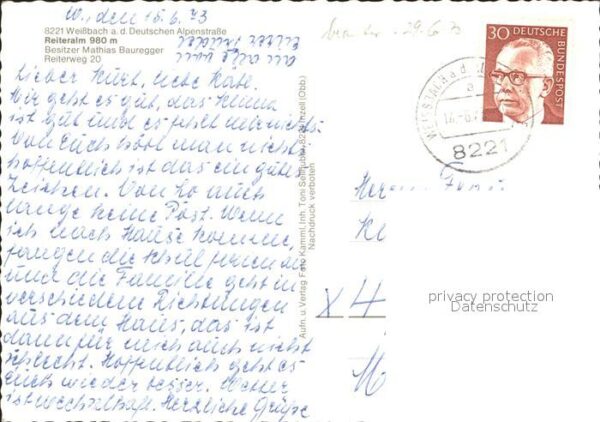 W., den 15.6.73
8221 Weißbach a. d. Deutschen Alpenstraße
Reiteralm 980 m
Besitzer Mathias Bauregger
Reiterweg 20
Lieber Kurt, liebe Käte.
Mir geht es gut, das Klima
ist gut und es fehlt mir nichts.
Von Euch hört man nichts
hoffentlich ist das ein gutes
Zeichen. Von Lo auch
lange keine Post. Wenn
ich nach Hause komme,
fangen die Schulferien an
und die Familie geht in
verschiedene Richtungen
aus dem Haus, das ist
dann für mich auch nicht
schlecht. Hoffentlich geht es
Euch wieder besser. Wetter
ist wechselhaft. Herzliche Grüße
an alle
Aufn. u. Verlag Foto Kamml. Inh. Toni Sellhuber, 8221 Inzell (Obb.)
Nachdruck verboten
29.6
30 DEUTSCHE BUNDESPOST
a
8221
Herrn
privacy protection
Datenschutz